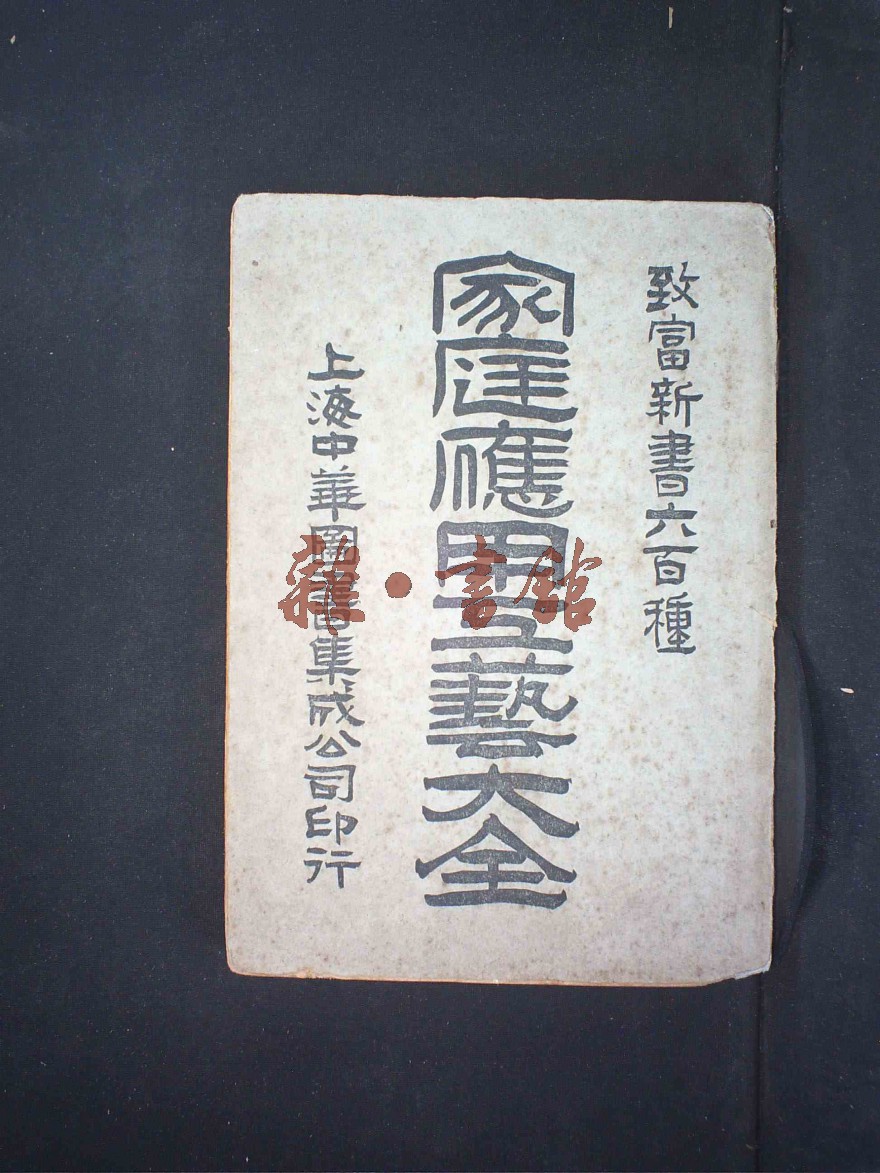 致富新書六百種
家庭應用工藝大全
上海中華圖書集成公司印行
雜·書館